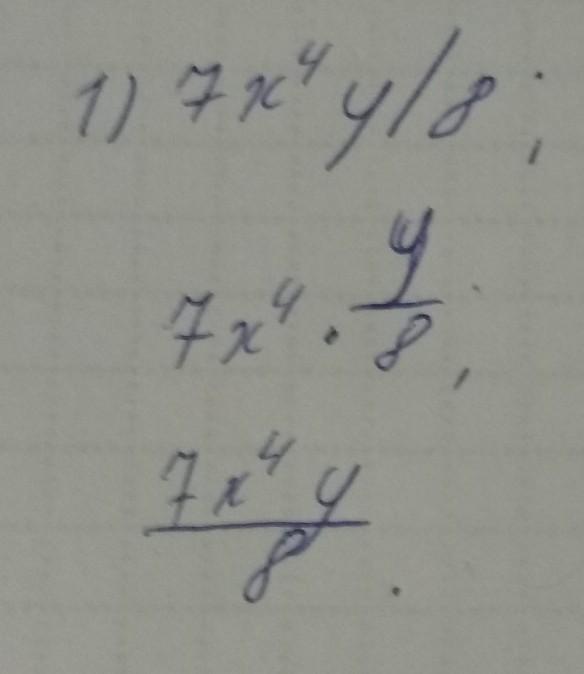 1) 7x⁴ y/8;
7x⁴ · y/8;
7x⁴ y/8.